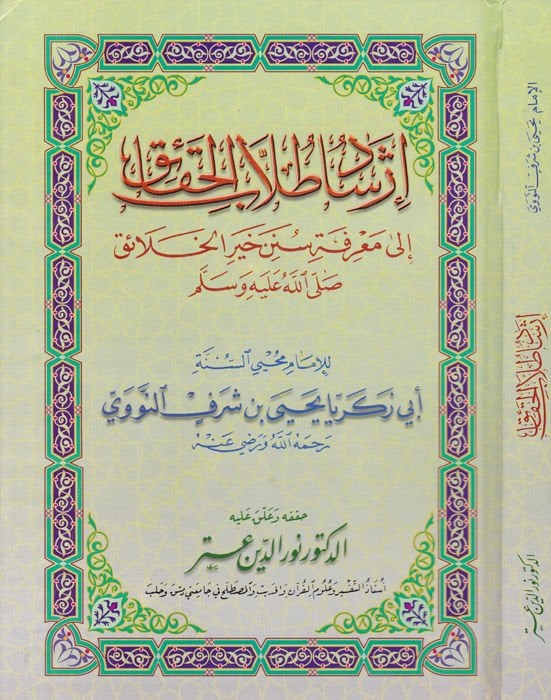 إرشاد طلاب الحقائق
إلى معرفة سنن خير الخلائق
صلى الله عليه وسلم
للإمام محيي السنة
أبي زكريا يحيى بن شرف النووي
رحمه الله ورضي عنه
حققه وعلق عليه
الدكتور نور الدين عتر
أستاذ التفسير وعلوم القرآن والحديث والمصطلح في جامعتي دمشق وحلب
الإمام يحيى بن شرف النووي
إرشاد طلاب الحقائق
الدكتور نور الدين عتر